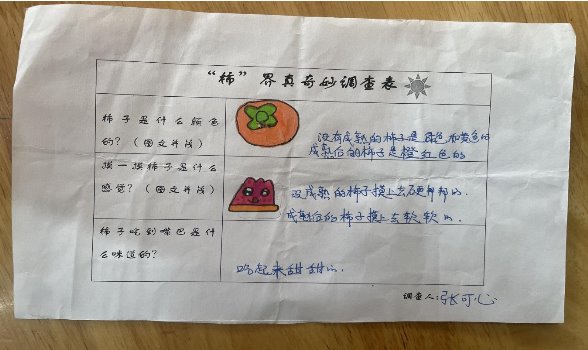 “柿”界真奇妙调查表
柿子是什么颜色
的?(图文并茂)
没有成熟的柿子是绿色和黄色的
成熟后的柿子是橙红色的
摸一摸柿子是什么
感觉?(图文并茂)
没成熟的柿子摸上去硬邦邦的、
成熟后的柿子摸上去软软的、
柿子吃到嘴巴是什
么味道的?
吃起来甜甜的、
调查人:张可心